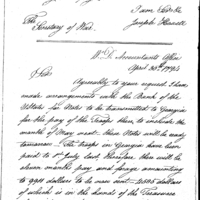 I am Sir &c
Joseph Howell
The
Secretary of War.
W. D. Accountants Office
April 30th 1794
Sir
Agreeably to your request I have
made arrangements with the Bank of the
United States Notes to be transmitted to Georgia
for the pay of the Troops there, to include the
month of May next. these Notes will be ready
tomorrow. The troops in Georgia have been
paid to 1st July last, therefore there will be
eleven months pay, and forage amounting
to dollars to be now sent — dollars
of which is in the hands of the Treasurer